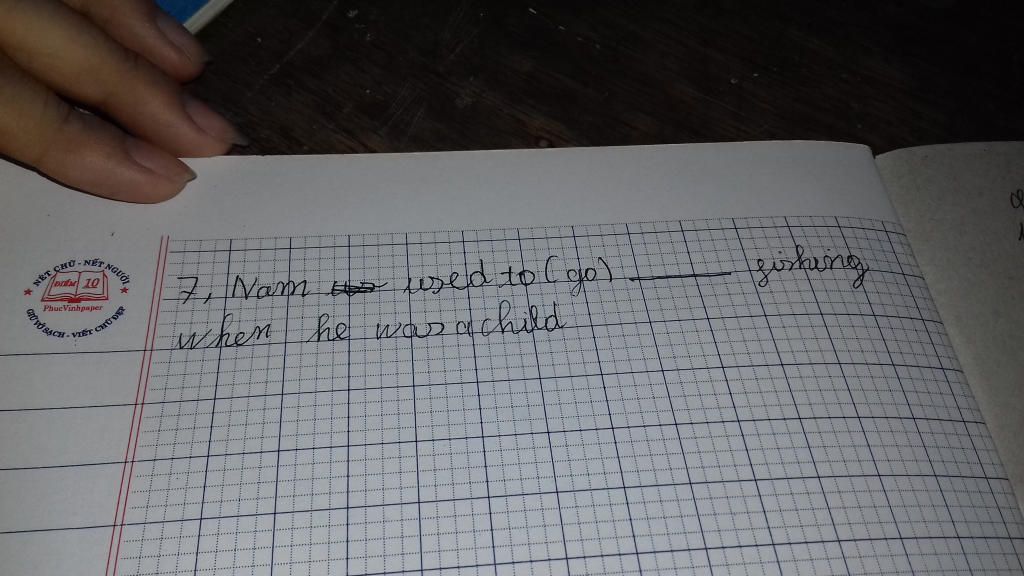 NÉT CHỮ - NẾT NGƯỜI
ĐIỂM 10
PhucVinhpaper
GIỮ VỞ SẠCH - VIẾT CHỮ ĐẸP
7, Nam used to (go) ______ fishing
when he was a child